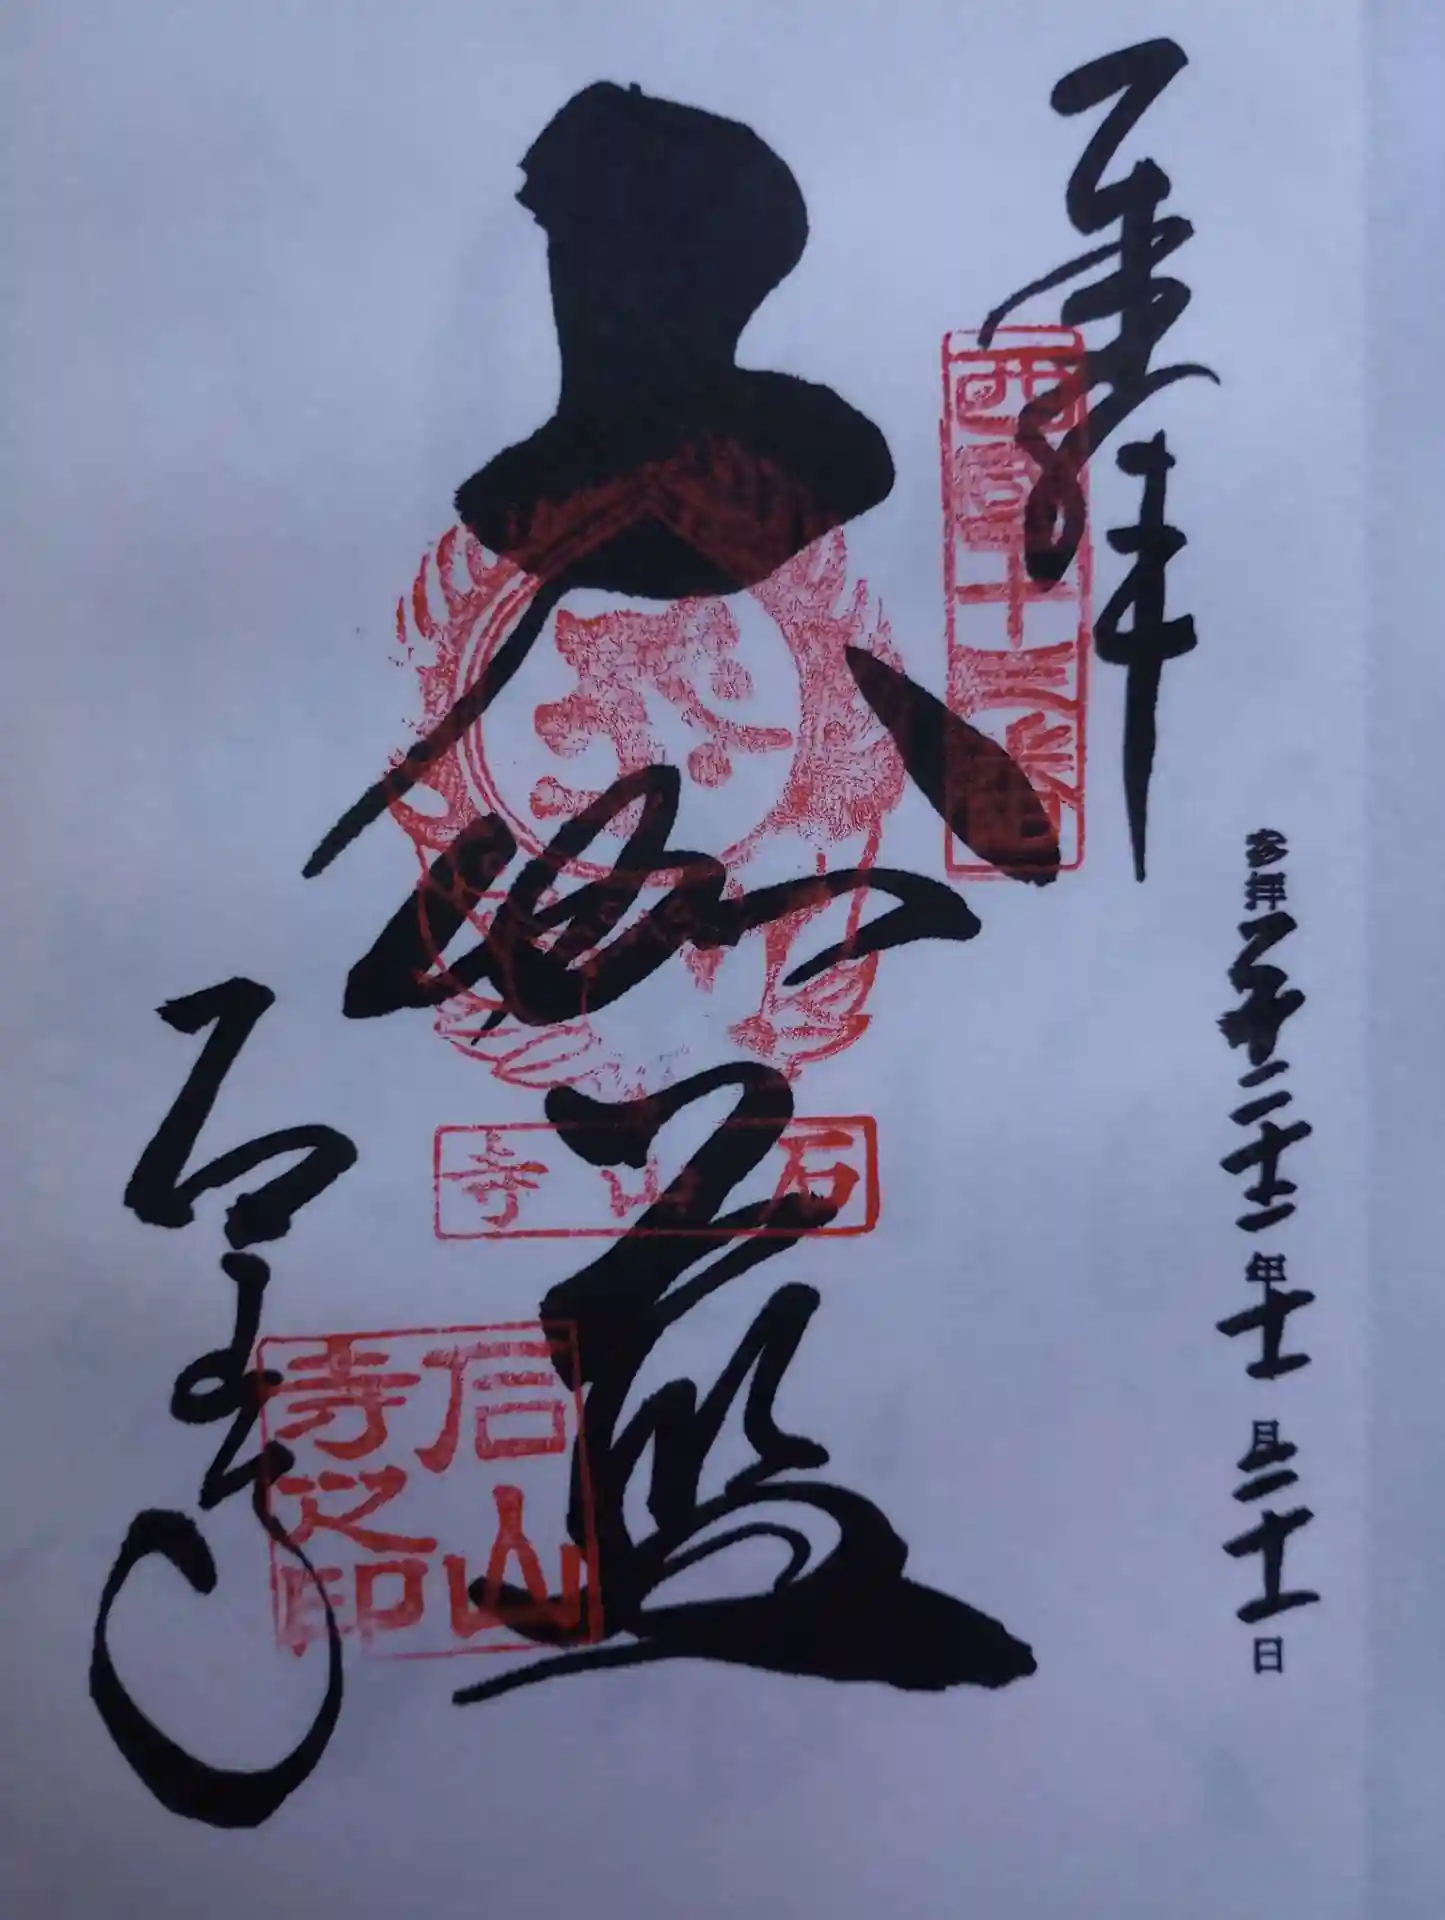 奉拝
西国十三番
参拝平成二十一年十一月二十一日
大伽藍
石山寺
石山寺
石山寺之印